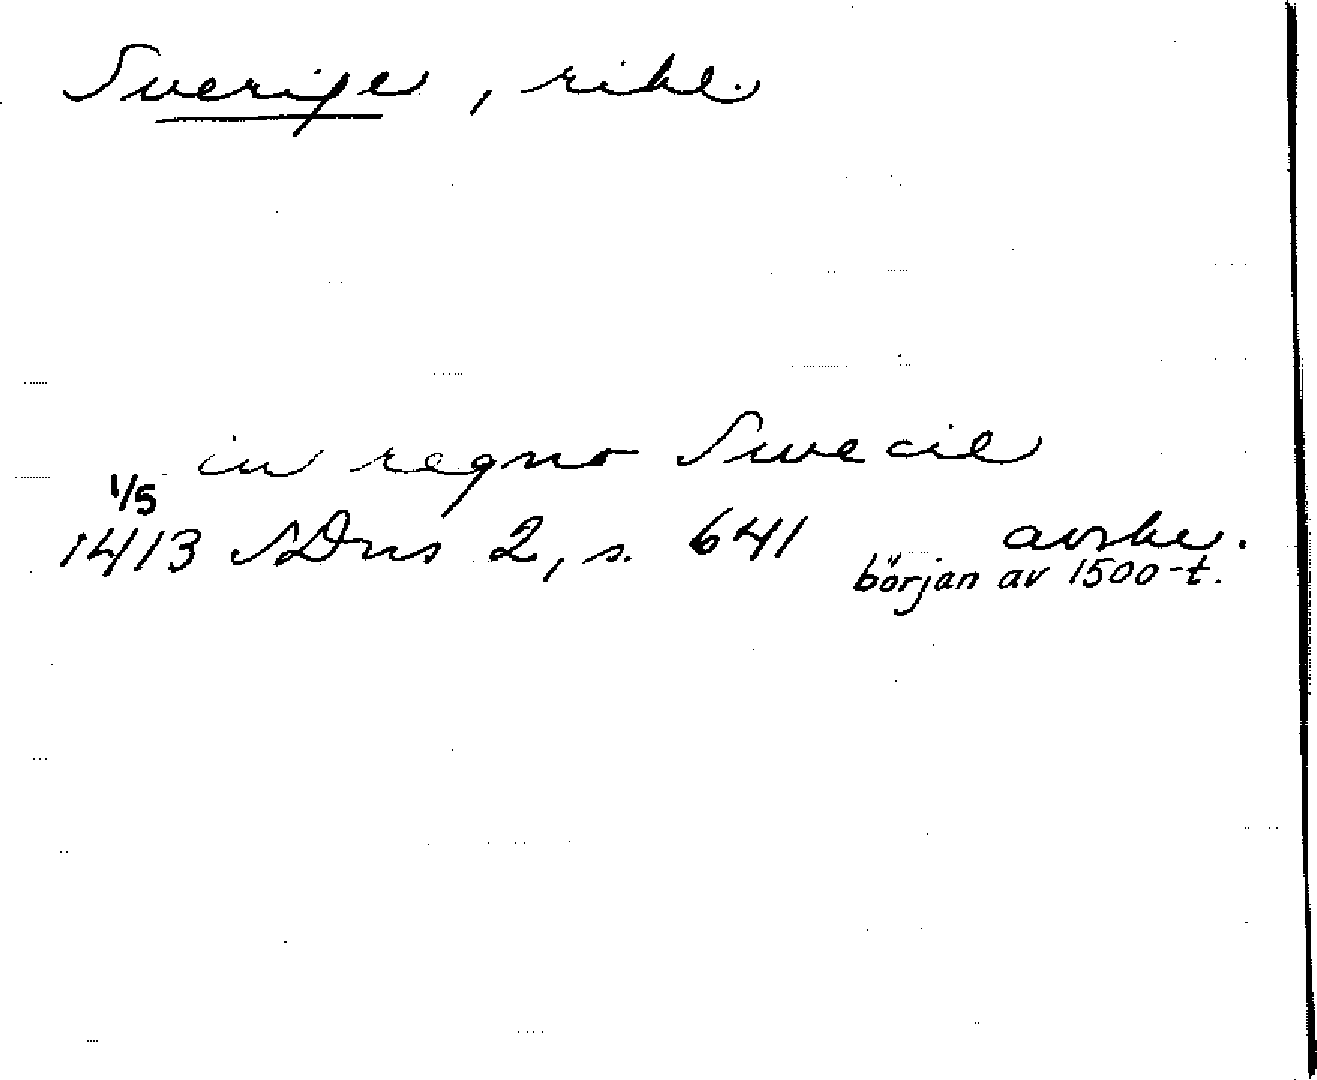 Sverige, rike.
in regno Swecie
1/5
1413 SDns 2, s. 641 avskr.
början av 1500-t.